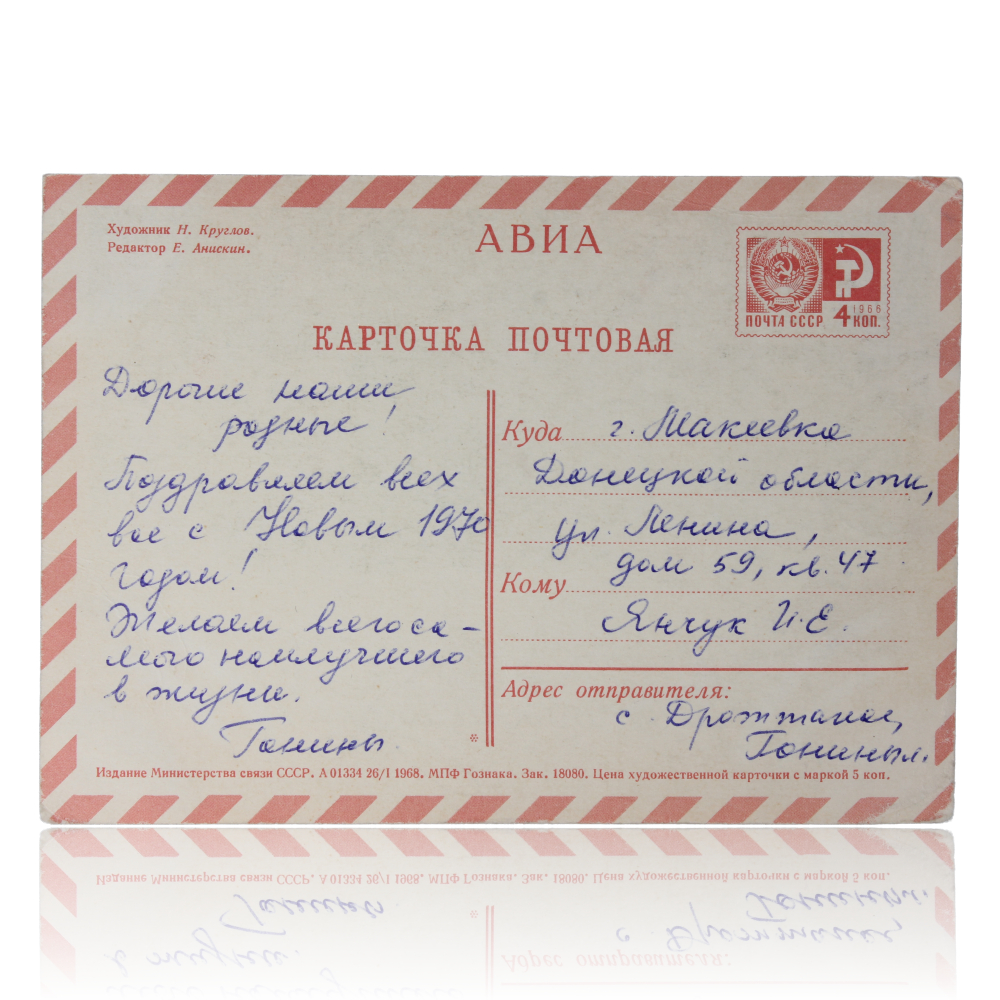 Художник Н. Круглов.
Редактор Е. Анискин.
АВИА
1966
ПОЧТА СССР 4 КОП.
КАРТОЧКА ПОЧТОВАЯ
Дорогие наши,
родные!
Поздравляем всех
вас с Новым 1970
годом!
Желаем всего са-
мого наилучшего
в жизни.
Гонины.
*
Куда г. Макеевка
Донецкой области,
ул. Ленина,
дом 59, кв. 47
Кому
Янчук И.Е.
Адрес отправителя:
с
Гонины
Издание Министерства связи СССР. А 01334 26/I 1968. МПФ Гознака. Зак. 18080. Цена художественной карточки с маркой 5 коп.